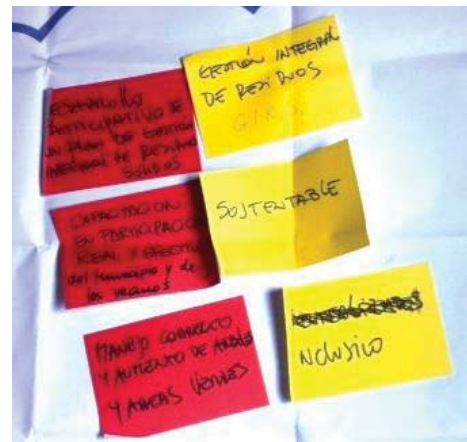 DESARROLLO
PARTICIPATIVO DE
UN PLAN DE GESTION
INTEGRAL DE RESIDUOS
SOLIDOS
GESTIÓN INTEGRAL
DE RESIDUOS
G.I.R.S.
CAPACITACION
EN PARTICIPACION
REAL Y EFECTIVA
del municipio y de
los vecinos
SUSTENTABLE
MANEJO CORRECTO
Y AUMENTO DE ARBOLES
Y AREAS VERDES
NCLUSIVO